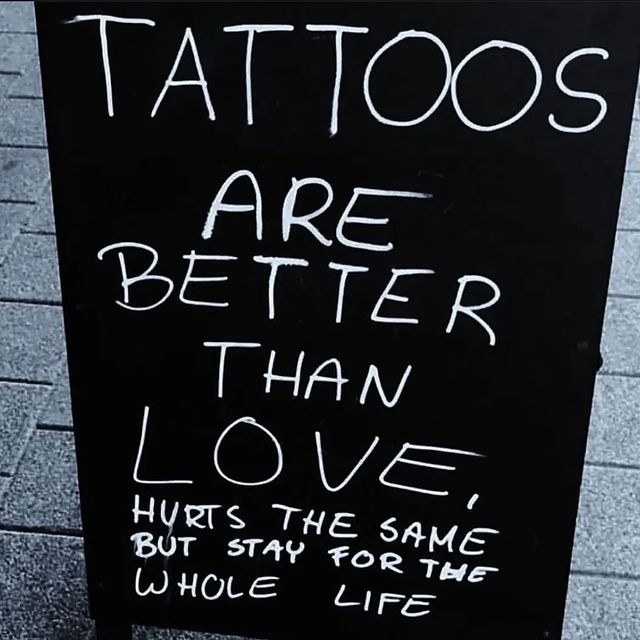 TATTOOS
ARE
BETTER
THAN
LOVE,
HURTS THE SAME
BUT STAY FOR THE
WHOLE LIFE